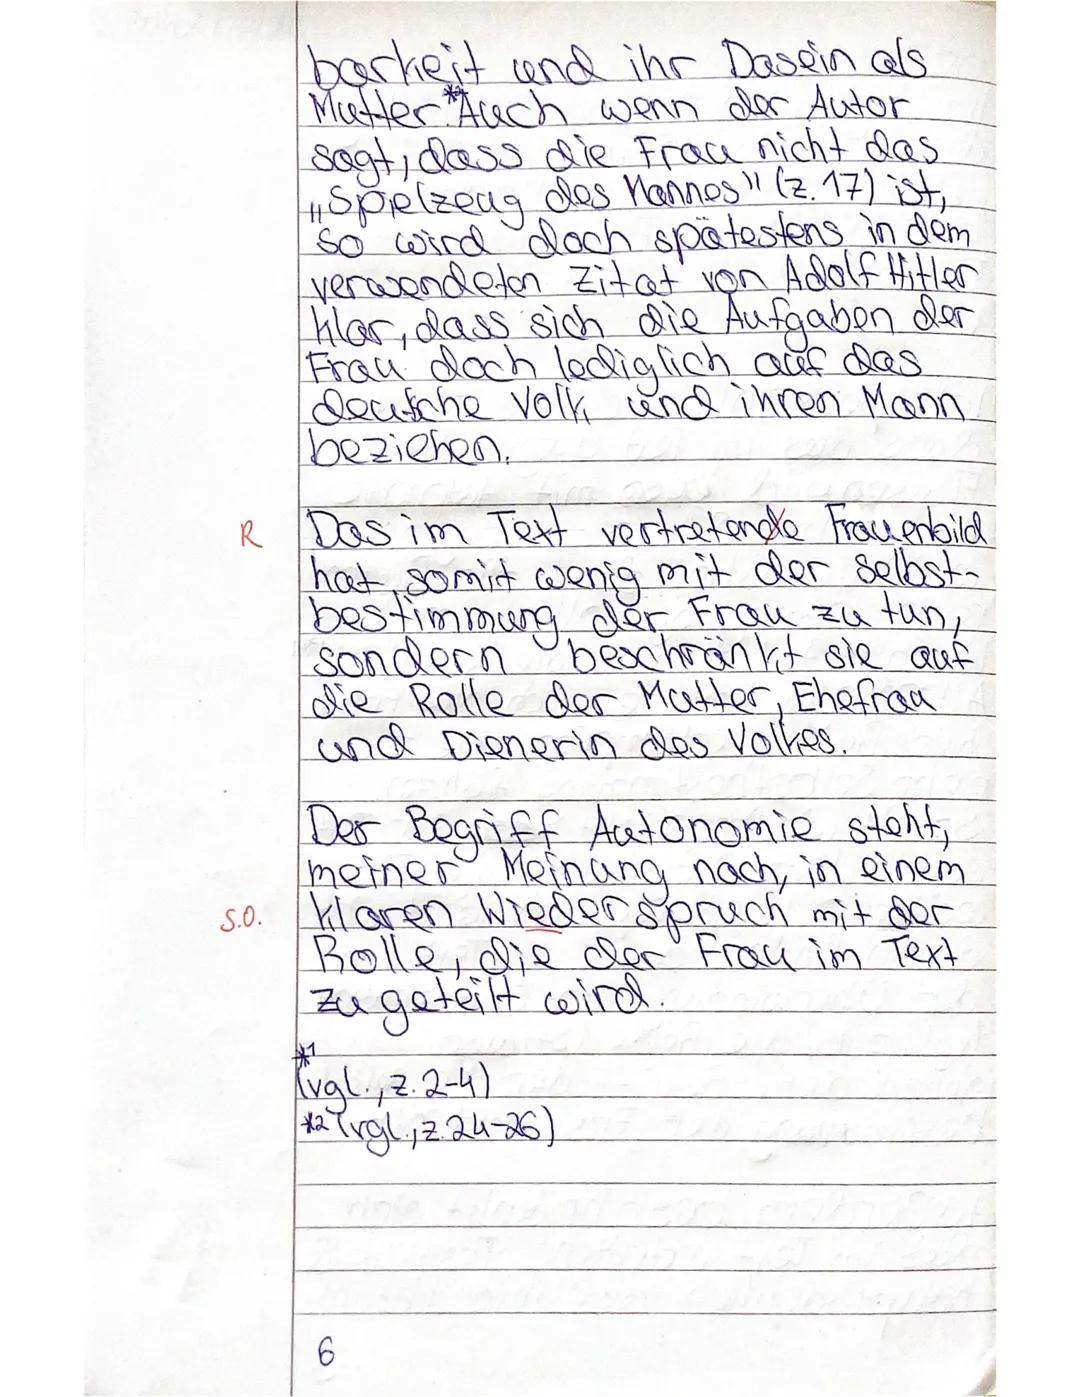 barkeit und ihr Dasein als
Mutter.*2 Auch wenn der Autor
sagt, dass die Frau nicht das
„Spielzeug des Mannes" (Z. 17) ist,
so wird doch spätestens in dem
verwendeten Zitat von Adolf Hitler
klar, dass sich die Aufgaben der
Frau doch lediglich auf das
deutsche Volk und ihren Mann
beziehen.
R Das im Text vertretende Frauenbild
hat somit wenig mit der Selbst-
bestimmung der Frau zu tun,
sondern beschränkt sie auf
die Rolle der Mutter, Ehefrau
und Dienerin des Volkes.
Der Begriff Autonomie steht,
meiner Meinung nach, in einem
s.o. klaren Wiederspruch mit der
Rolle, die der Frau im Text
zugeteilt wird.
*1
(vgl., Z. 2-4)
*2 (vgl., Z. 24-26)
6